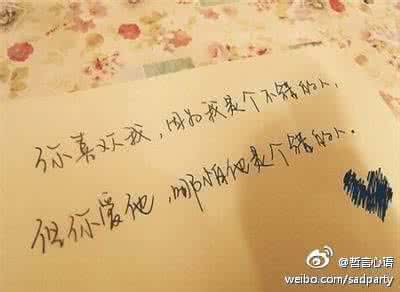 你喜欢我，因为我是个不错的人，
但你爱他，哪怕他是个错的人.
@哲言心语
weibo.com/sadparty